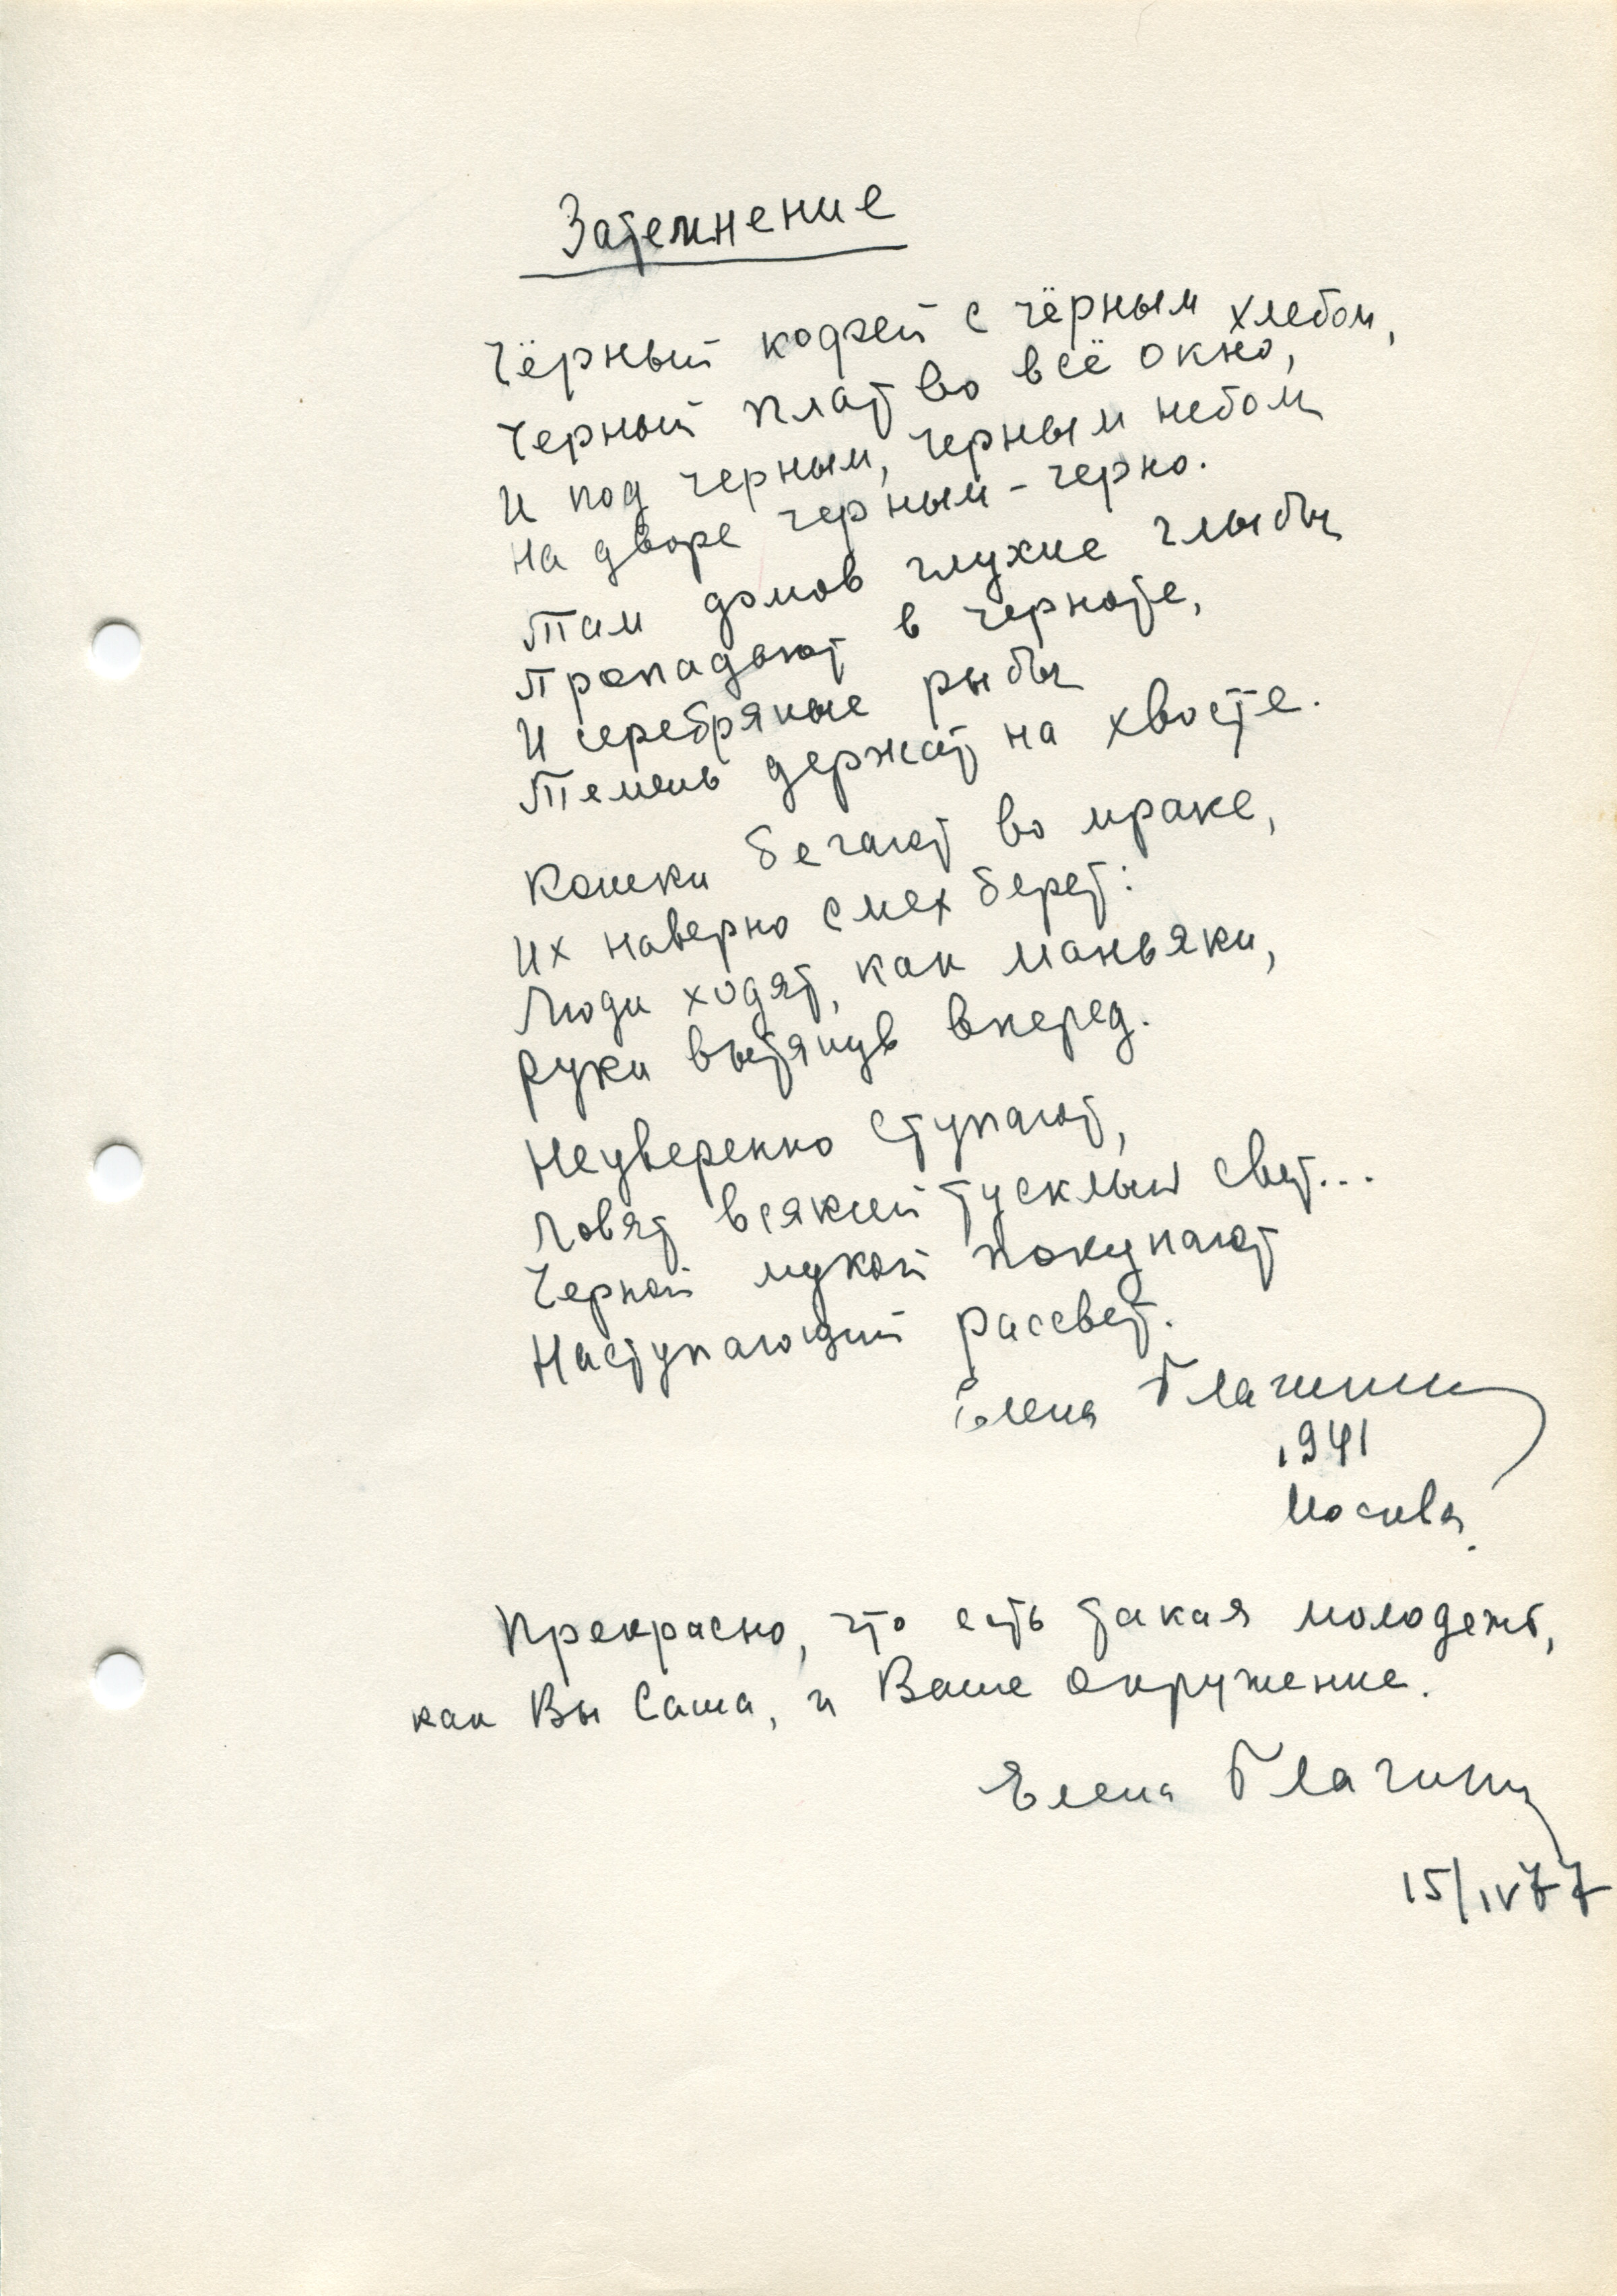 Затемнение
Чёрный кофей с чёрным хлебом,
Черный плат во всё окно,
И под черным, черным небом
На дворе черным-черно.
Там домов глухие глыбы
Пропадают в черноте,
И серебряные рыбы
Темень держат на хвосте.
Кошки бегают во мраке,
Их наверно смех берет:
Люди ходят, как маньяки,
Руки вытянув вперед.
Неуверенно ступают,
Ловят всякий тусклый свет...
Черной мукой покупают
Наступающий рассвет.
Елена Благинина
1941
Москва.
Прекрасно, что есть такая молодежь,
как Вы Саша, и Ваше окружение.
Елена Благинина
15/IV 77